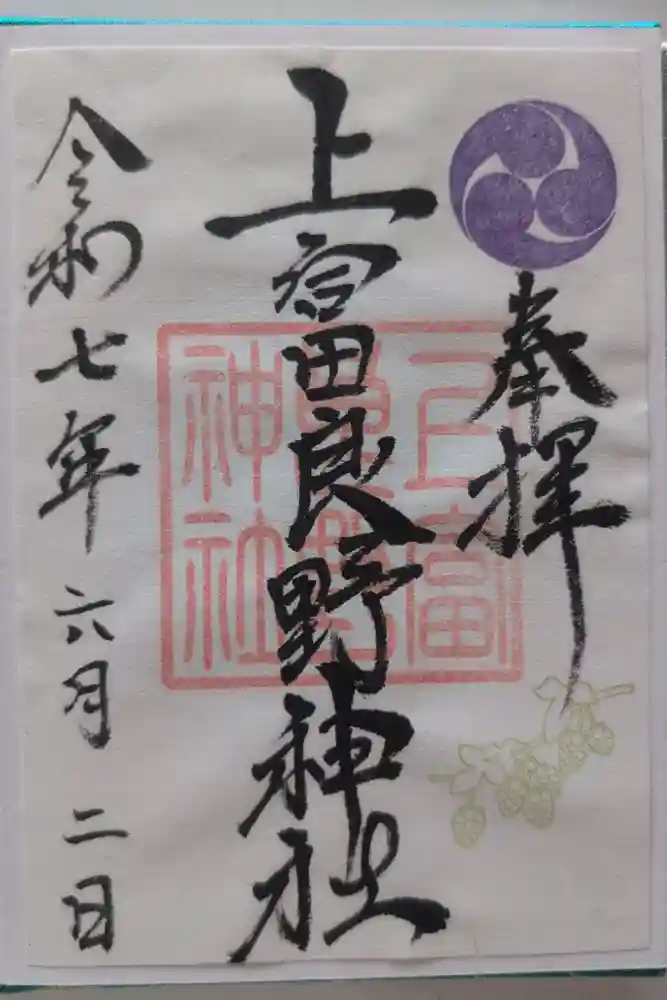 奉拝
上富良野神社
上富
良野
神社
令和七年六月二日